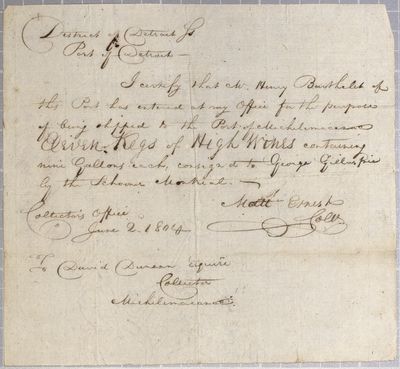 District of Detroit Ss
Port of Detroit —
I certify that Mr. Henry Berthelet of
this Port has entered at my Office for the purpose
of being shipped to the Port of Michilimacanac
Eleven Kegs of High Wines containing
nine Gallons each, consign'd to George Gillespie
by the Schooner Montreal. —
Matt Ernest
Collr
Collector's Office
June 2. 1804
To David Duncan Esquire
Collector
Michilimacanac